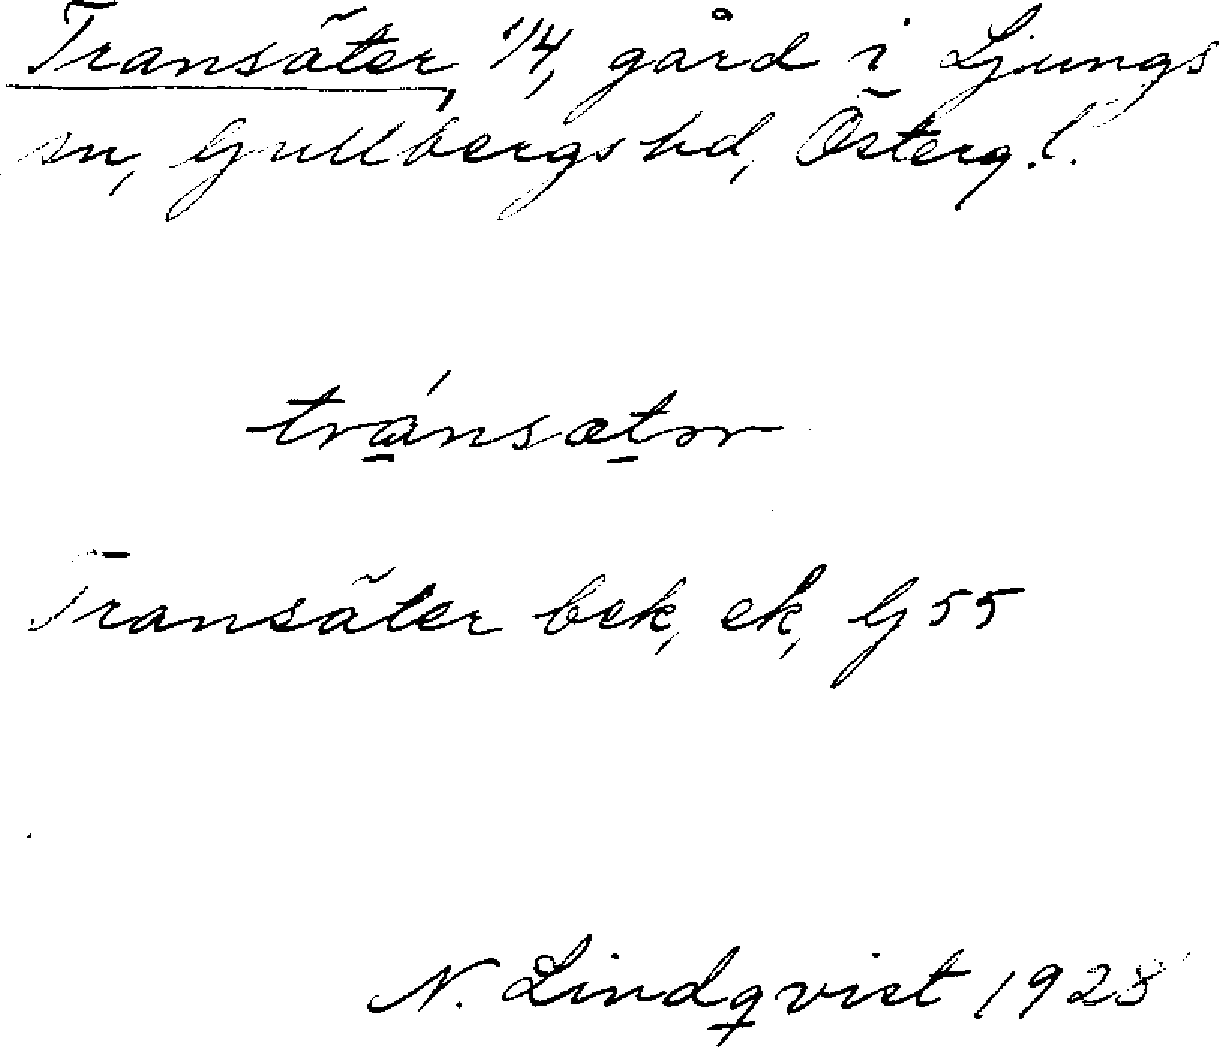 Transäter 1/4, gård i Ljungs
sn, Gullbergs hd, Österg.l.
tránsatər
Transäter bek, ek, G 55
N. Lindqvist 1928